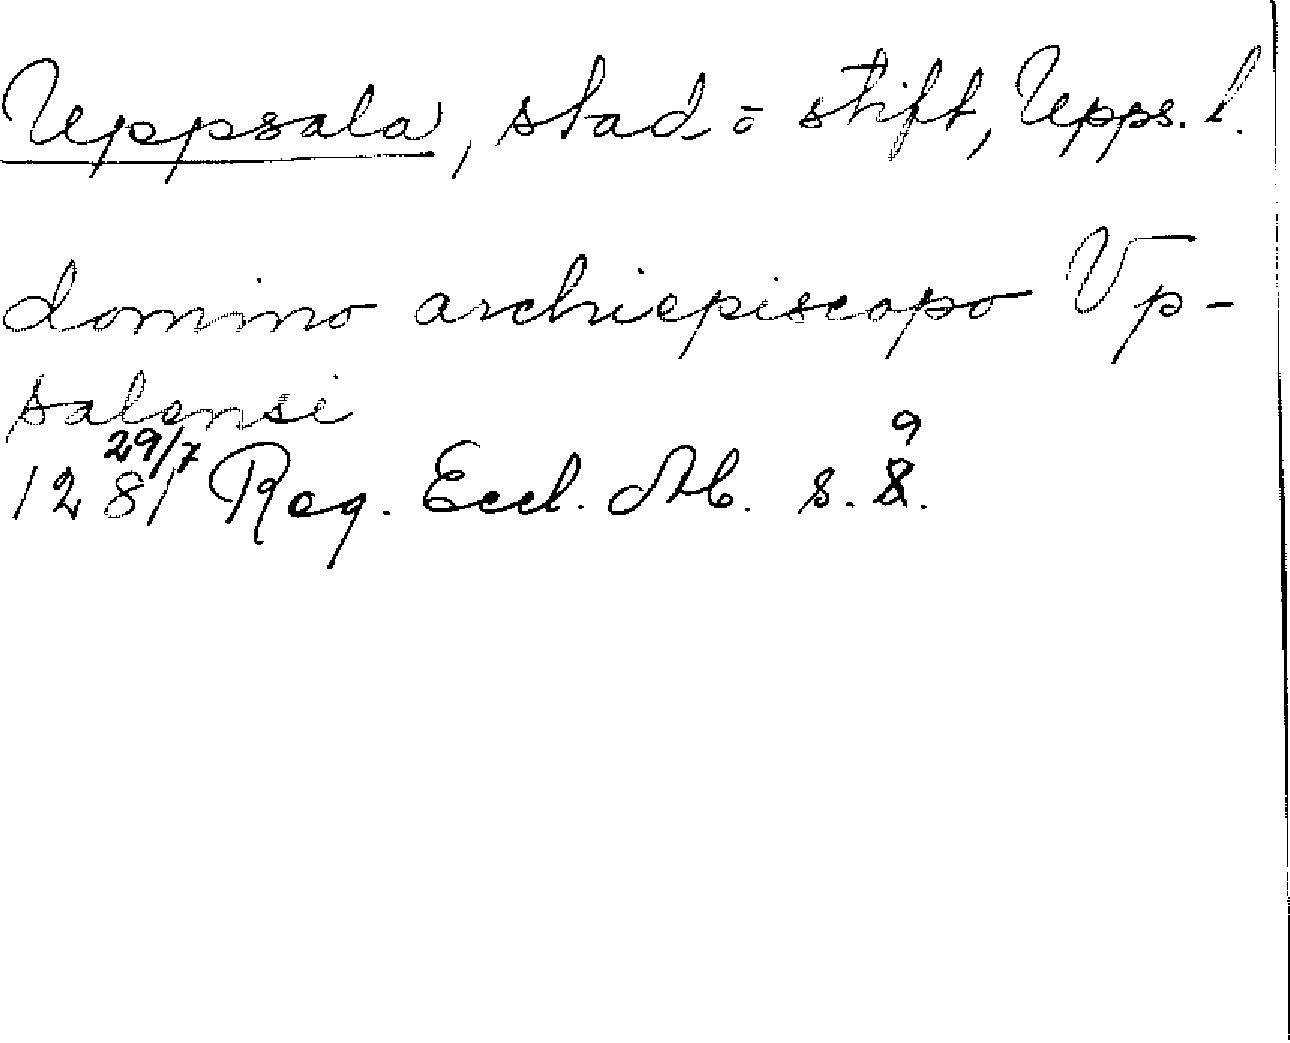 Uppsala, stad o stift, Upps. l.
domino archiepiscopo Vp-
salensi
29/7 9
1281 Reg. Eccl. Ab. s. 8.